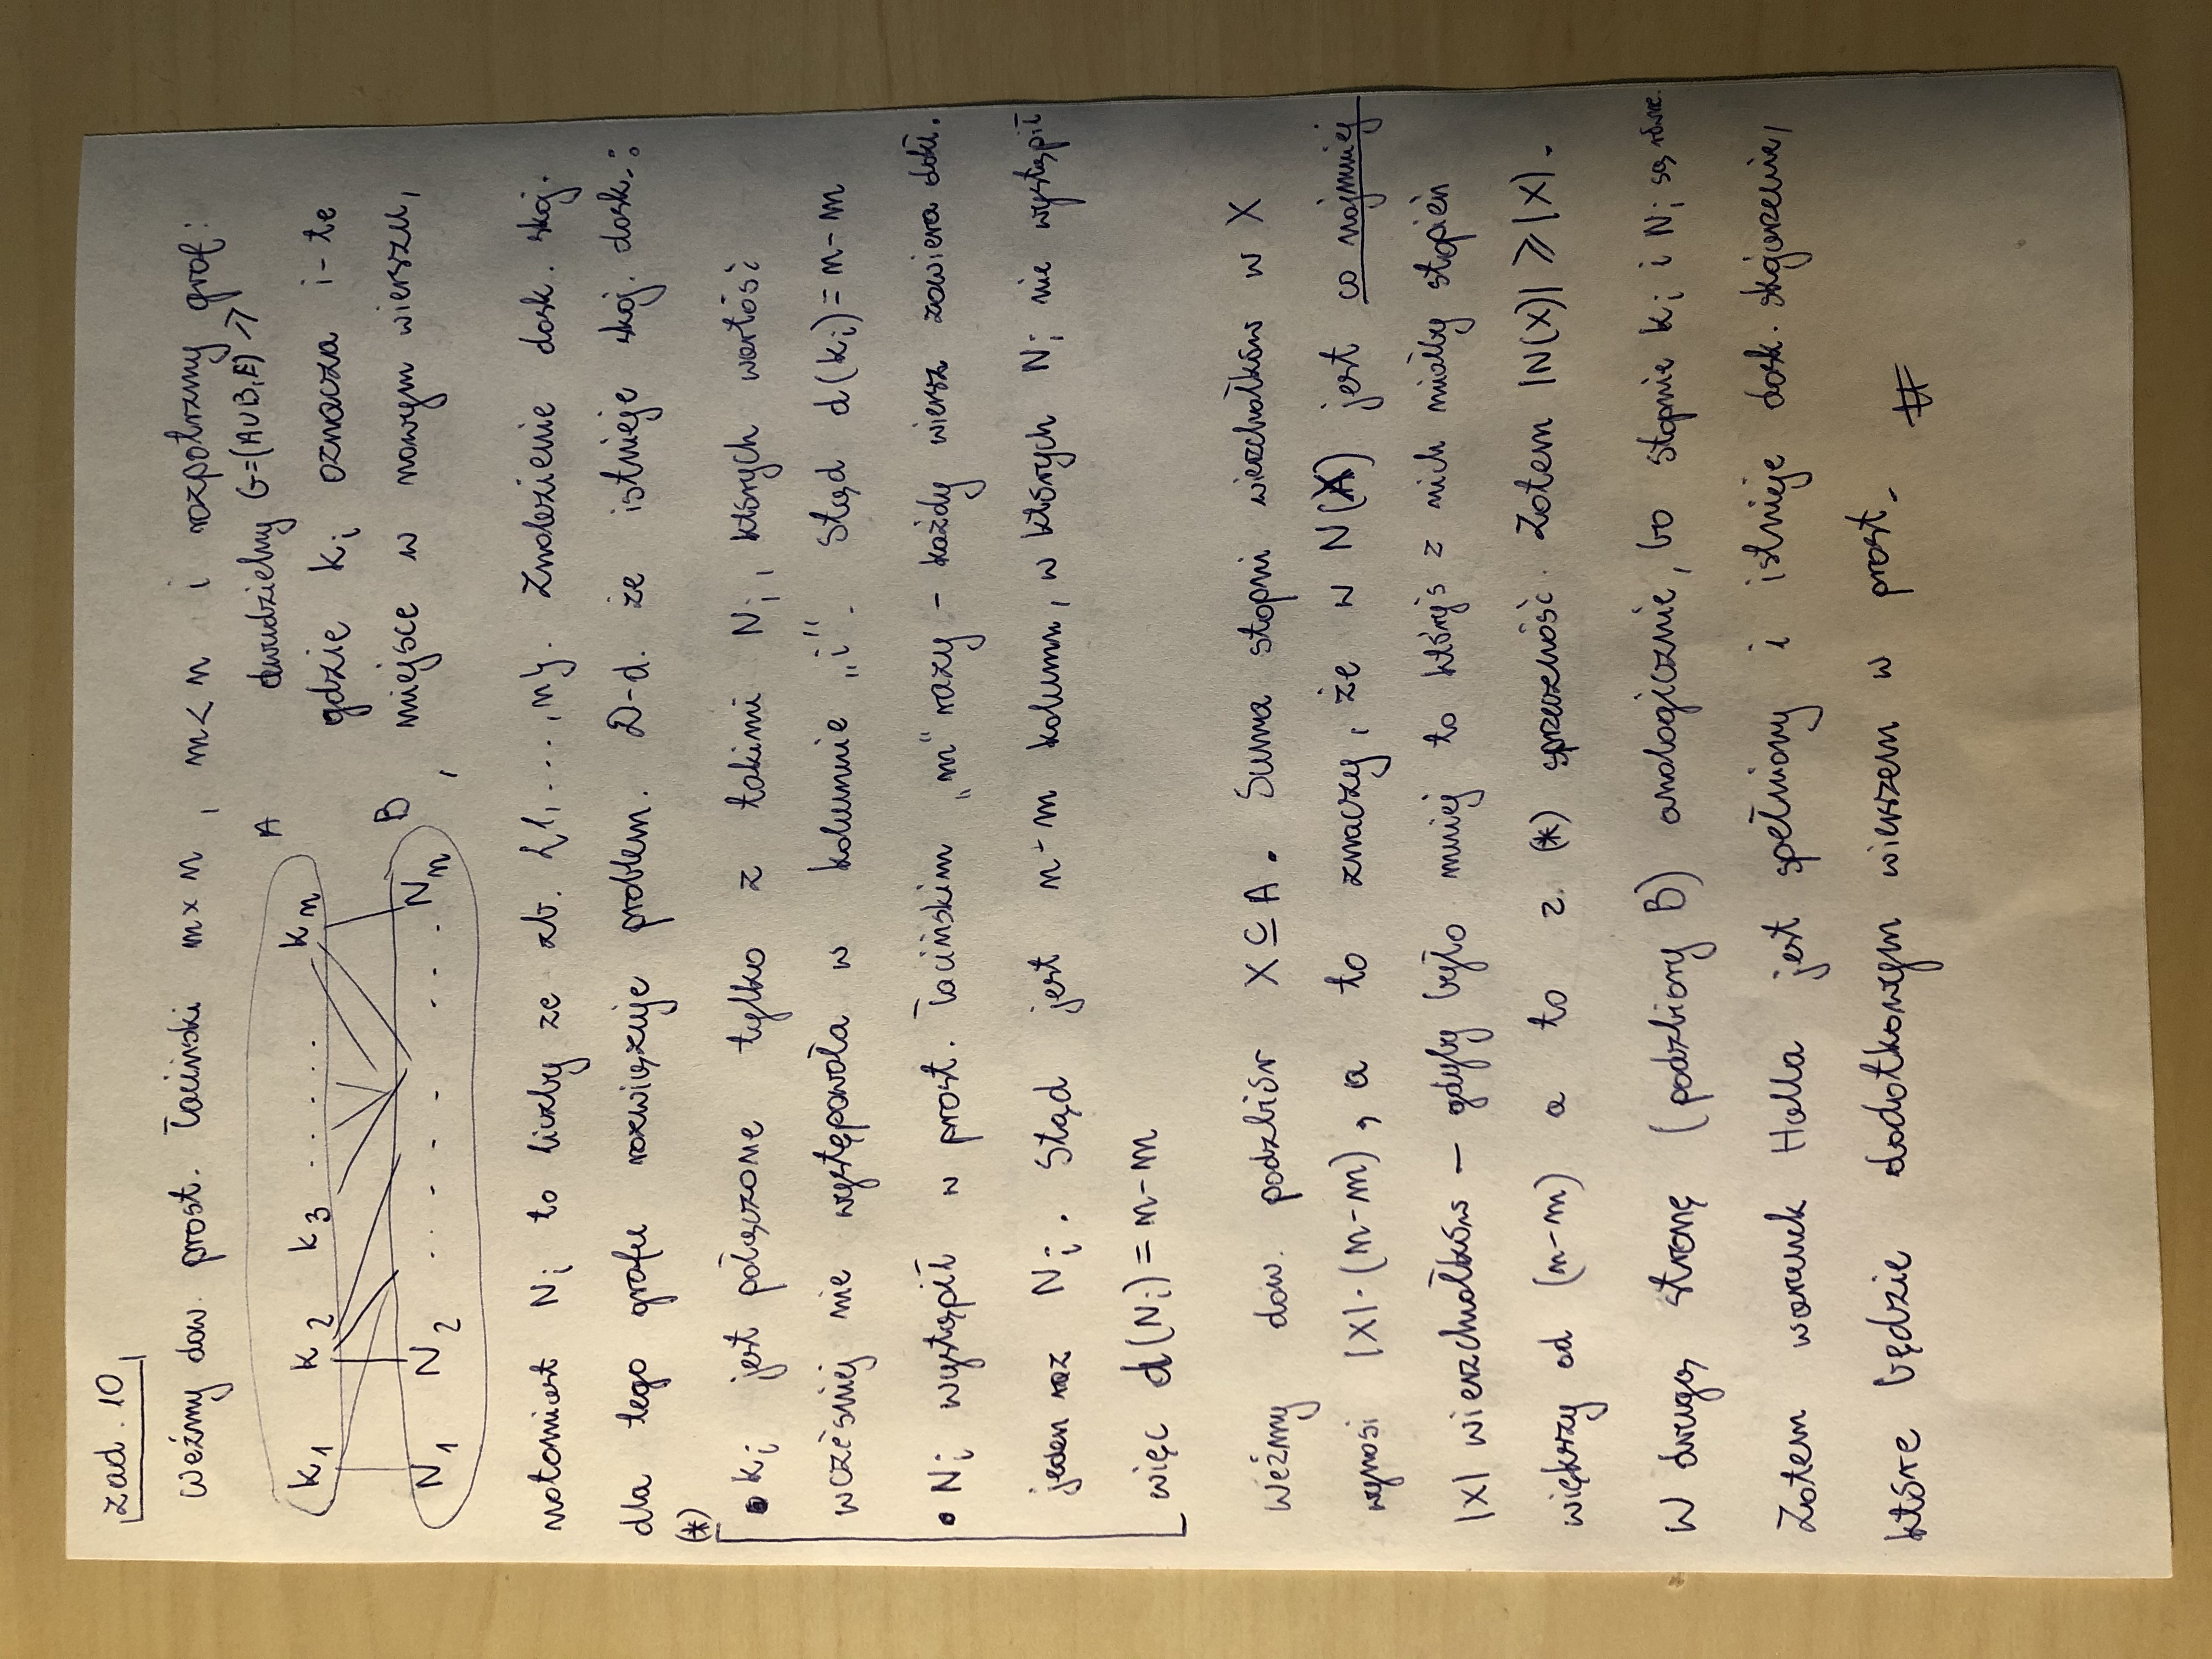 zad. 10
Weźmy dow. prost. łaciński m×n, m<n i rozpatrzmy graf:
dwudzielny G=(A∪B,E) →
k₁ k₂ k₃ ...... kₙ A
gdzie kᵢ oznacza i-te
N₁ N₂ ..... .... Nₙ B ,
miejsce w nowym wierszu,
natomiast Nᵢ to liczby ze zb. {1,...,n}. Znalezienie dosk. skoj.
dla tego grafu rozwiązuje problem. D-d. że istnieje skoj. dosk.:
(*)
• kᵢ jest połączone tylko z takimi Nⱼ, których wartość
wcześniej nie występowała w kolumnie „i". Stąd d(kᵢ)=n-m
• Nᵢ wystąpił w prost. łacińskim „m" razy - każdy wiersz zawiera dokł.
jeden raz Nᵢ. Stąd jest n-m kolumn, w których Nᵢ nie wystąpił
więc d(Nᵢ)=n-m
Weźmy dow. podzbiór X⊆A. Suma stopni wierzchołków w X
wynosi |X|·(n-m), a to znaczy, że w N(X) jest co najmniej
|X| wierzchołków – gdyby było mniej to któryś z nich miałby stopień
większy od (n-m) a to z. (*) sprzeczność. Zatem |N(X)| ⩾ |X|.
W drugą stronę (podzbiory B) analogicznie, bo stopnie kᵢ i Nᵢ są równe.
Zatem warunek Halla jest spełniony i istnieje dosk. skojarzenie,
które będzie dodatkowym wierszem w prost. #